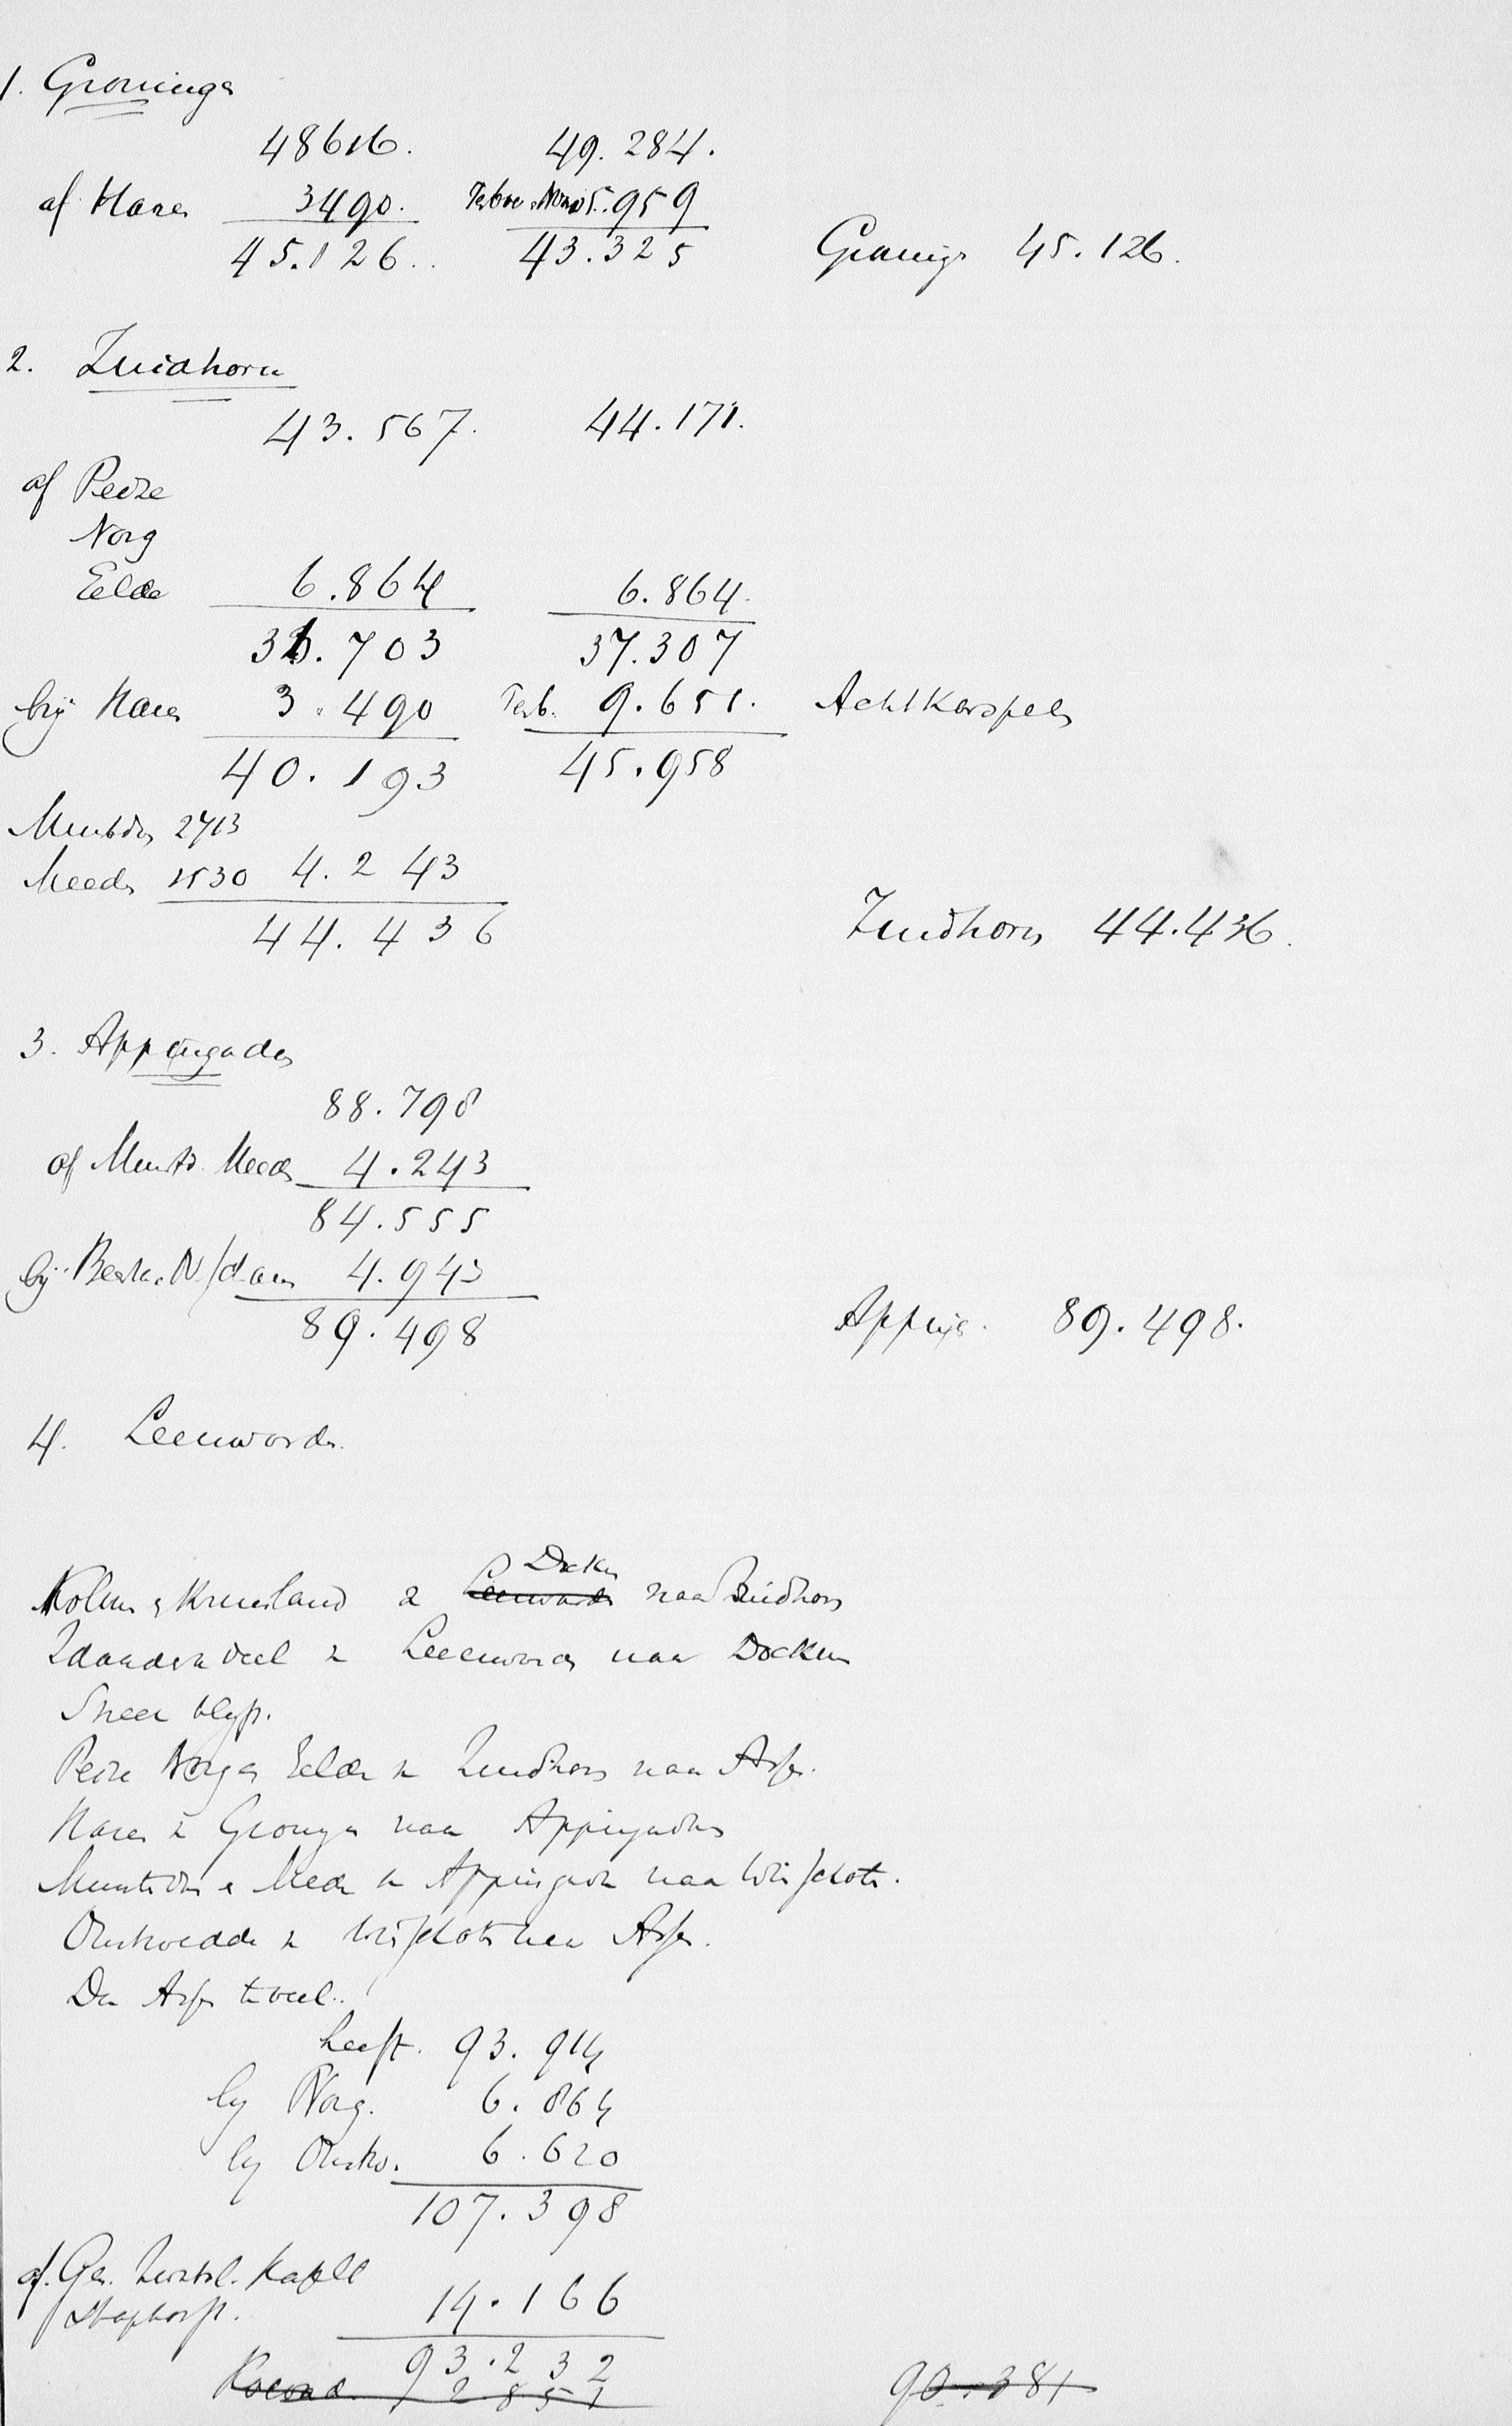 1. Groninge
48616. 49.284.
af Hare 3490. 5.959
45.126.. 43.325 Groning 45.126.
2. Zuidhorn
43.567. 44.171.
af Peize
Norg
Eelde 6.864 6.864.
36.703 37.307
bij Hare 3.490 Terb. 9.651. Achtkarspels
40.193 45.958
Muntd 2713
Meede 1530 4.243
44.436 Zuidhorn 44.436.
3. Appingada
88.798
af Munt. Meede 4.243
84.555
bij Beerta. N/dam 4.943
89.498 Apping. 89.498.
4. Leeuward.
Dokku
Kollum & Kruisland Leeuward naar Zuidhorn
Idaarderadeel Leeuward naar Dokkum
Sneek blijft.
Peize Norg Eelde Zuidhorn naar Assn.
Hare Groninge naar Appingada
Munt & Meede Appingada naar Winschote.
Onstwedde Winschote naar Assn.
Dan Assn te veel..
heeft. 93.914
bij Norg. 6.864
bij Onstw. 6.620
107.398
af. Gen.
Staphorst. 14.166
93.232
2851 90.381